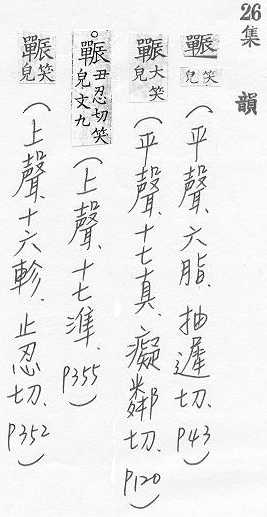 26集韻
辴笑皃（平聲、六脂、抽遲切、P43）
辴大笑皃（平聲、十七真、癡鄰切、P120）
○辴丑忍切笑皃文九（上聲、十七準、P355）
辴笑皃（上聲、十六軫、止忍切、P352）